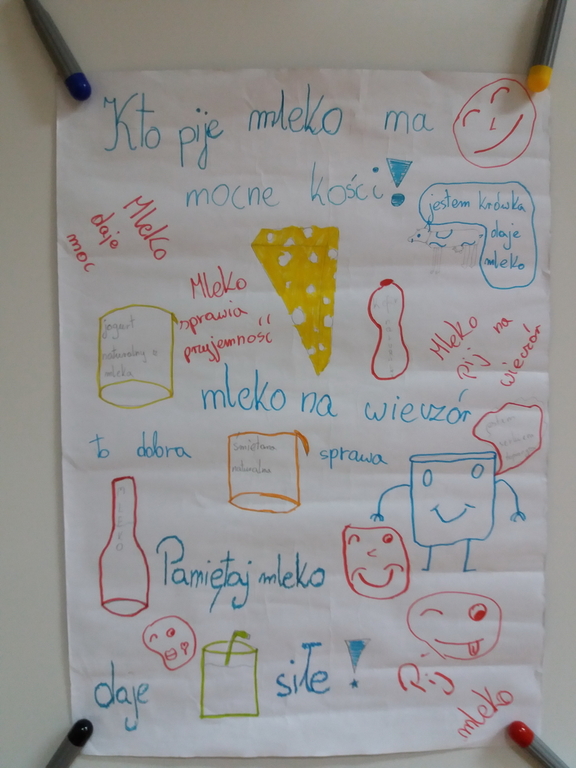 Kto pije mleko ma
mocne kości!
jestem krówka
daje
mleko
Mleko
daje
moc
Mleko
sprawia
przyjemność
jogurt
naturalny z
mleka
Mleko
pij na
wieczór
mleko na wieczór
to dobra sprawa
śmietana
naturalna
jestem
MLEKO
Pamiętaj mleko
daje siłe!
Pij
mleko